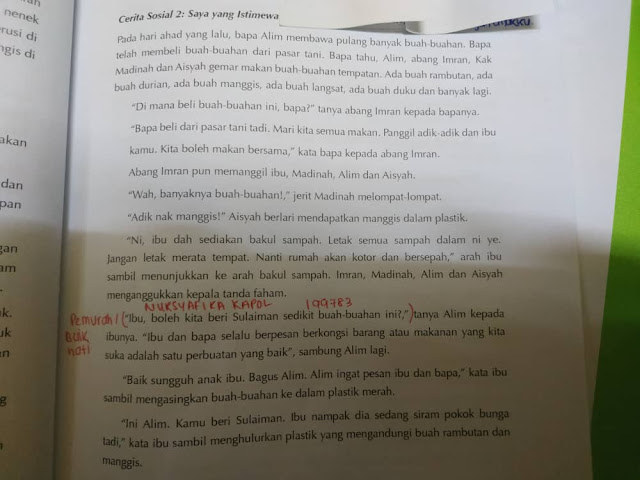 Cerita Sosial 2: Saya yang Istimewa
nenek
Pada hari ahad yang lalu, bapa Alim membawa pulang banyak buah-buahan. Bapa
rusi di
telah membeli buah-buahan dari pasar tani. Bapa tahu, Alim, abang Imran, Kak
ngis di
Madinah dan Aisyah gemar makan buah-buahan tempatan. Ada buah rambutan, ada
buah durian, ada buah manggis, ada buah langsat, ada buah duku dan banyak lagi.
"Di mana beli buah-buahan ini, bapa?" tanya abang Imran kepada bapanya.
"Bapa beli dari pasar tani tadi. Mari kita semua makan. Panggil adik-adik dan ibu
akan
kamu. Kita boleh makan bersama," kata bapa kepada abang Imran.
Abang Imran pun memanggil ibu, Madinah, Alim dan Aisyah.
dan
"Wah, banyaknya buah-buahan!," jerit Madinah melompat-lompat.
pan
"Adik nak manggis!" Aisyah berlari mendapatkan manggis dalam plastik.
"Ni, ibu dah sediakan bakul sampah. Letak semua sampah dalam ni ye.
gan
Jangan letak merata tempat. Nanti rumah akan kotor dan bersepah," arah ibu
am
sambil menunjukkan ke arah bakul sampah. Imran, Madinah, Alim dan Aisyah
menganggukkan kepala tanda faham.
NURSYAFIKA KAPOL 199783
k.
Pemurah/
("Ibu, boleh kita beri Sulaiman sedikit buah-buahan ini?,") tanya Alim kepada
uk
Baik
ibunya. "Ibu dan bapa selalu berpesan berkongsi barang atau makanan yang kita
n
hati
suka adalah satu perbuatan yang baik", sambung Alim lagi.
"Baik sungguh anak ibu. Bagus Alim. Alim ingat pesan ibu dan bapa," kata ibu
sambil mengasingkan buah-buahan ke dalam plastik merah.
"Ini Alim. Kamu beri Sulaiman. Ibu nampak dia sedang siram pokok bunga
tadi," kata ibu sambil menghulurkan plastik yang mengandungi buah rambutan dan
manggis.